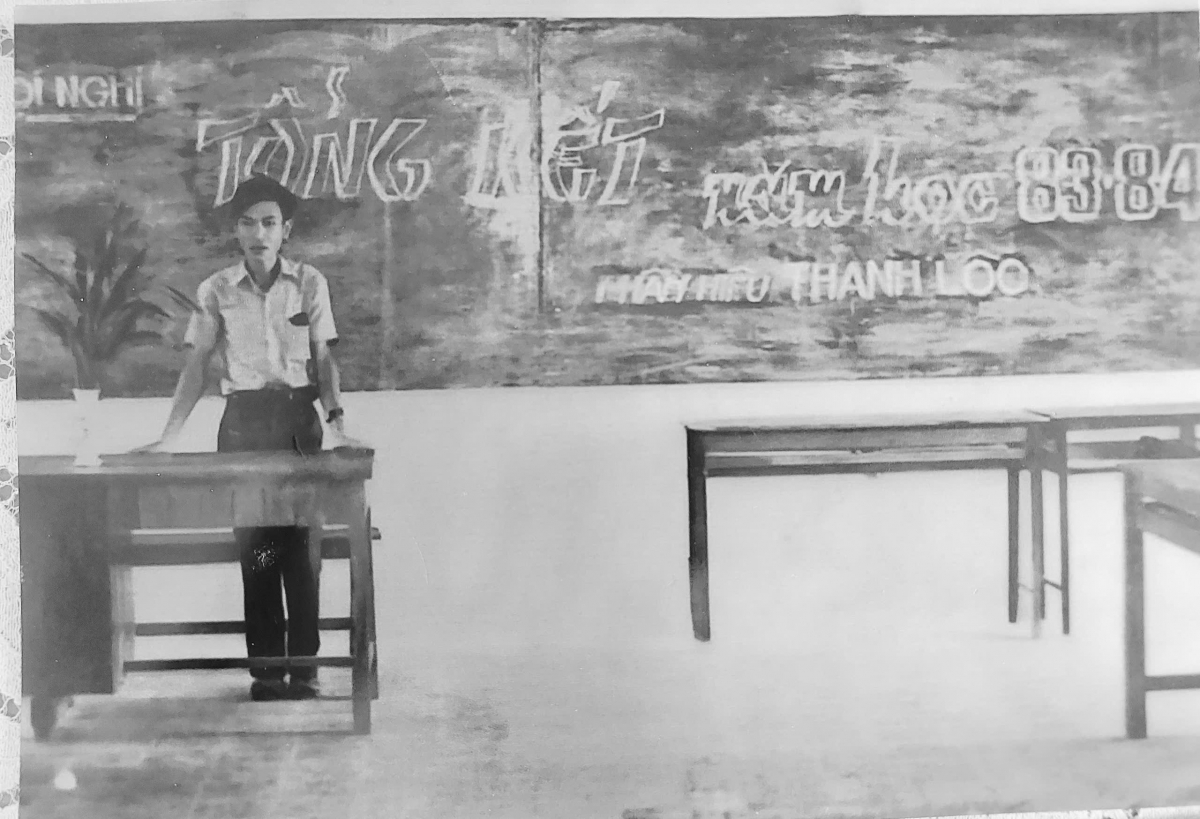 ỘI NGHỊ
TỔNG KẾT năm học 83-84
PHÂN HIỆU THẠNH LỘC